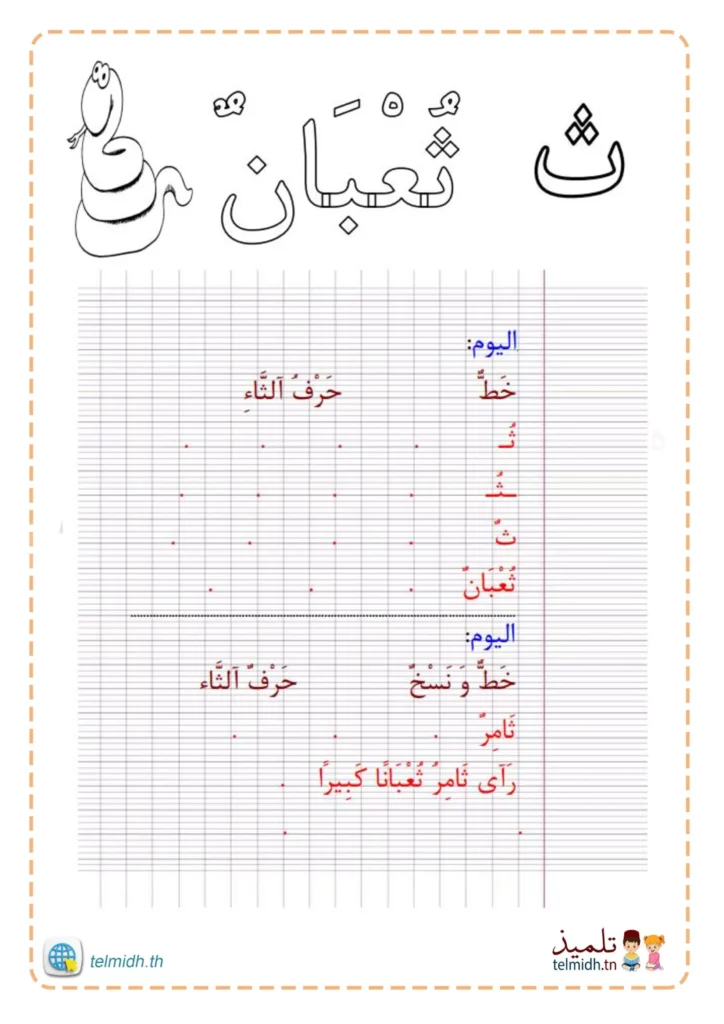 ث ثُعْبَانٌ
اليوم:
خَطٌّ حَرْفُ آلثَّاءِ
ثُـ . . . .
ـثُـ . . . .
ثٌ . . . .
ثُعْبَانٌ . . .
اليوم:
خَطٌّ وَ نَسْخٌ حَرْفٌ آلثَّاء
ثَامِرٌ . . .
رَآى ثَامِرُ ثُعْبَانًا كَبِيرًا .
. .
telmidh.th
تلميذ
telmidh.tn